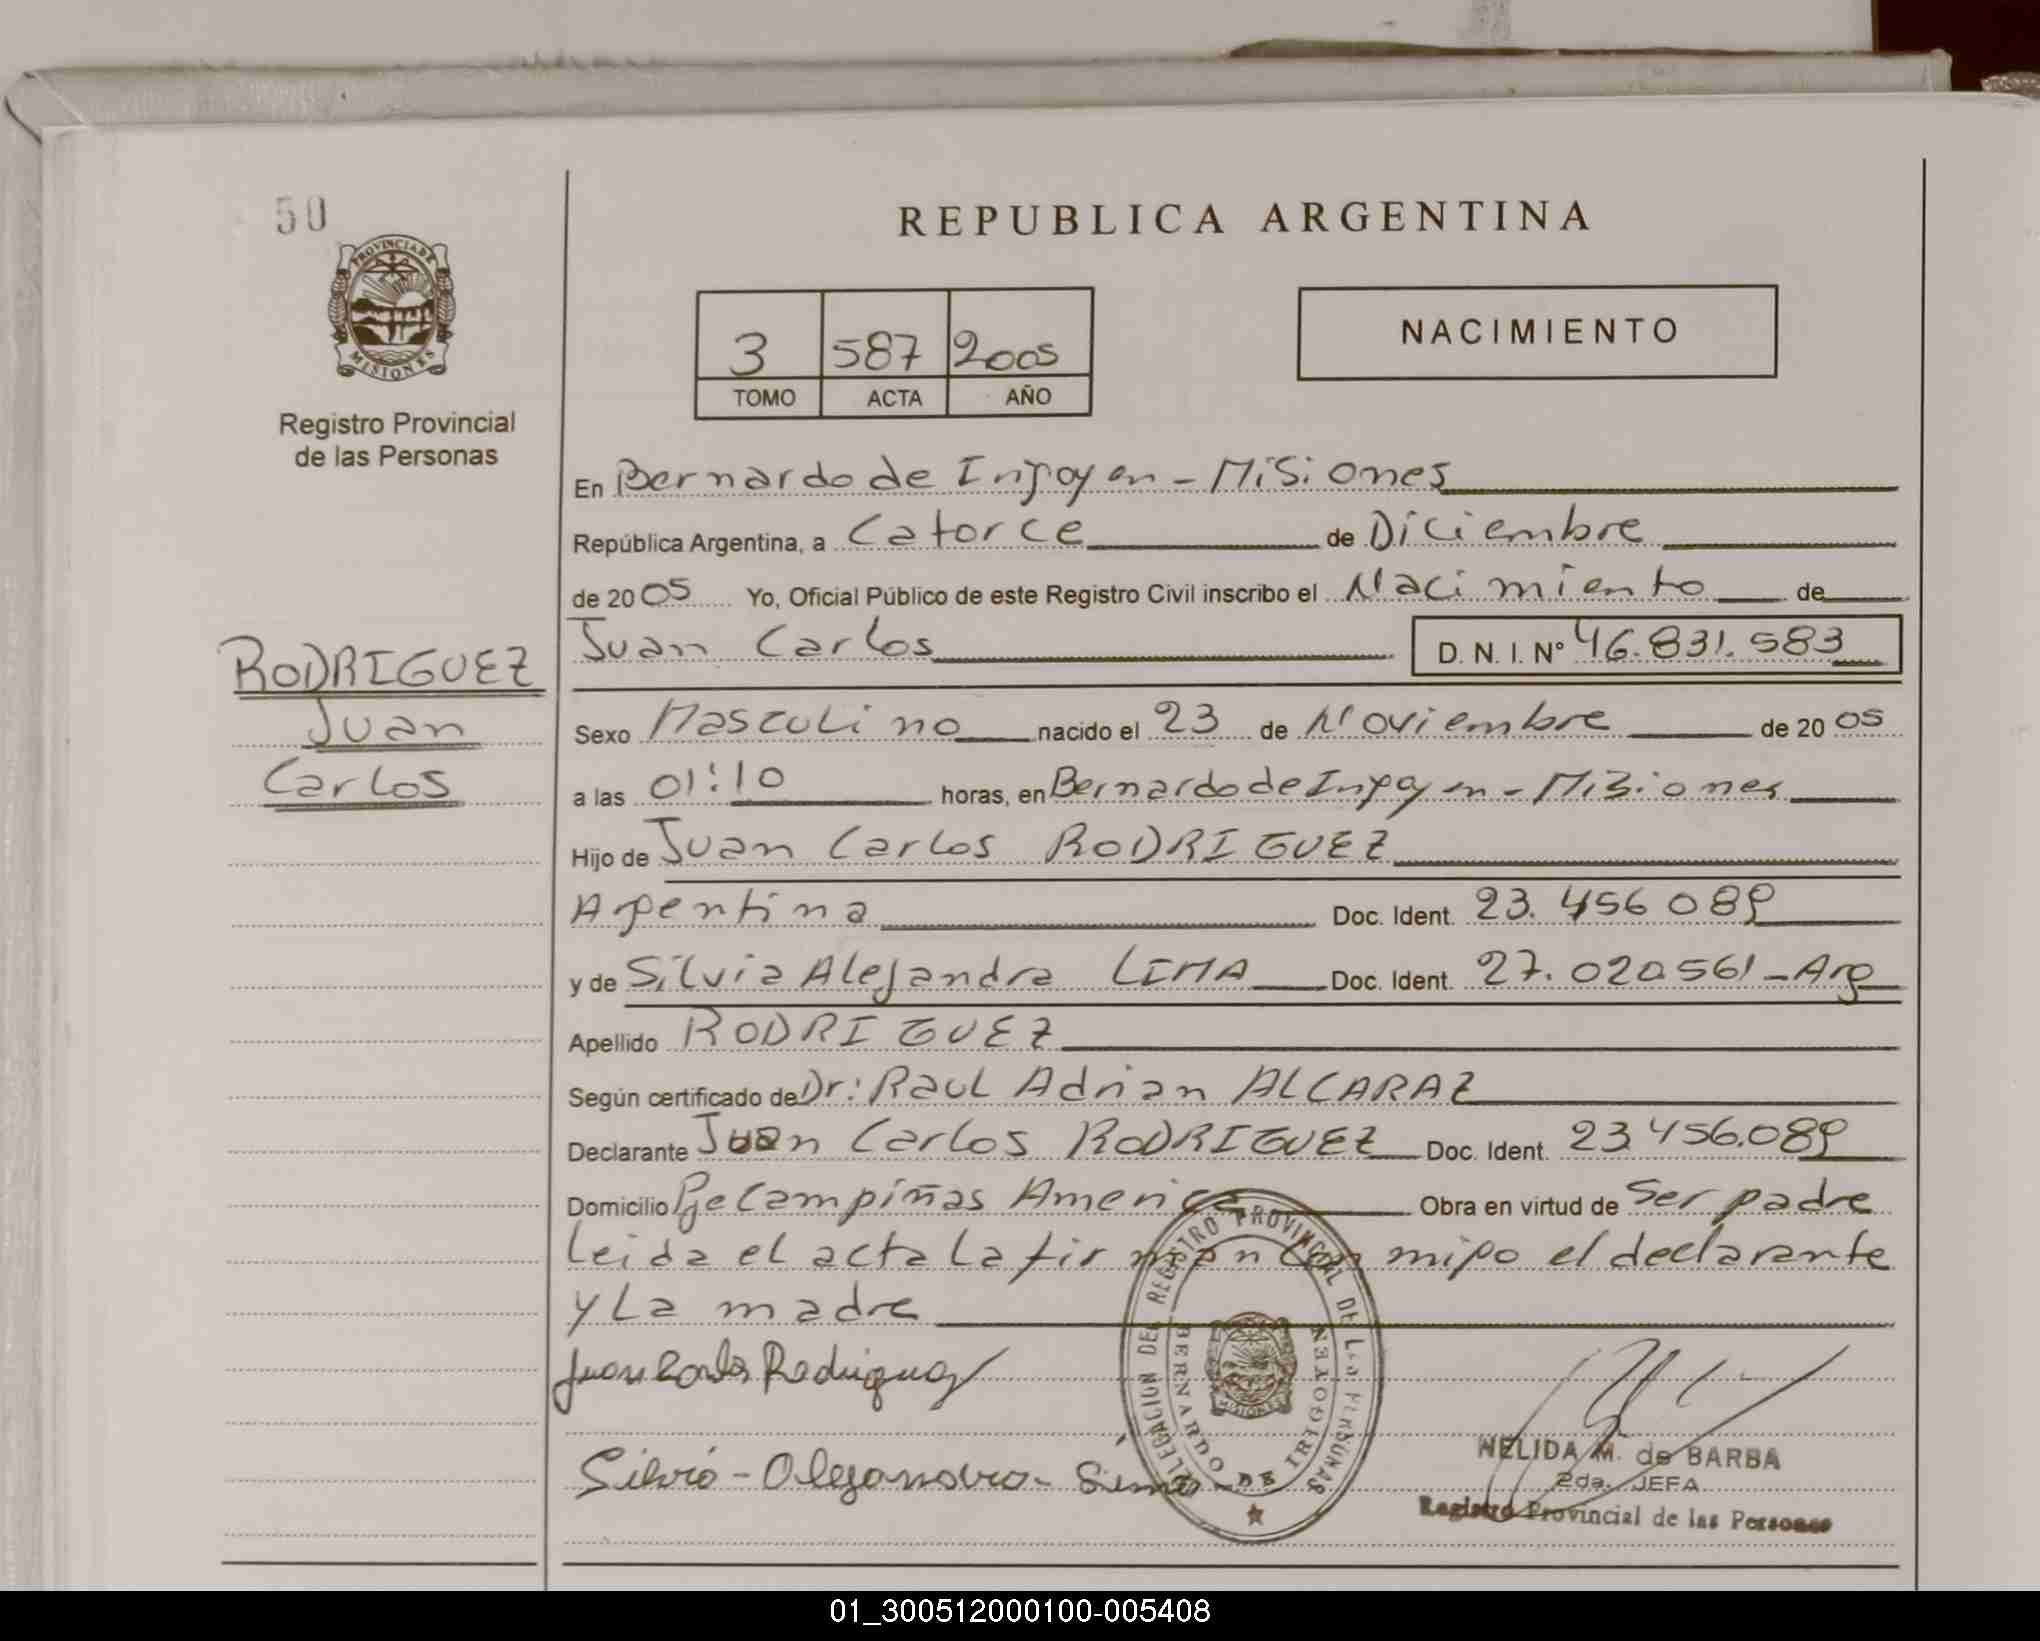 50
PROVINCIA DE
MISIONES
Registro Provincial
de las Personas
REPUBLICA ARGENTINA
3 587 2005
TOMO ACTA AÑO
NACIMIENTO
En Bernardo de Irigoyen - Misiones
República Argentina, a Catorce de Diciembre
de 2005 Yo, Oficial Público de este Registro Civil inscribo el Nacimiento de
Juan Carlos D. N. I. Nº 46.831.583
RODRIGUEZ
Juan
Carlos
Sexo Masculino nacido el 23 de Noviembre de 2005
a las 01:10 horas, en Bernardo de Irigoyen - Misiones
Hijo de Juan Carlos RODRIGUEZ
Argentina Doc. Ident. 23.456 089
y de Silvia Alejandra LIMA Doc. Ident. 27.020561 - Arg
Apellido RODRIGUEZ
Según certificado de Dr: Raul Adrian ALCARAZ
Declarante Juan Carlos RODRIGUEZ Doc. Ident. 23456.089
Domicilio Pje Campiñas America Obra en virtud de Ser padre
leida el acta la firman con migo el declarante
y La madre
Juan Carlos Rodriguez
Silvia - Alejandra -
DELEGACION DEL REGISTRO PROVINCIAL DE LAS PERSONAS
BERNARDO DE IRIGOYEN
MISIONES
NELIDA M. de BARBA
2da. JEFA
Registro Provincial de las Personas
01_300512000100-005408